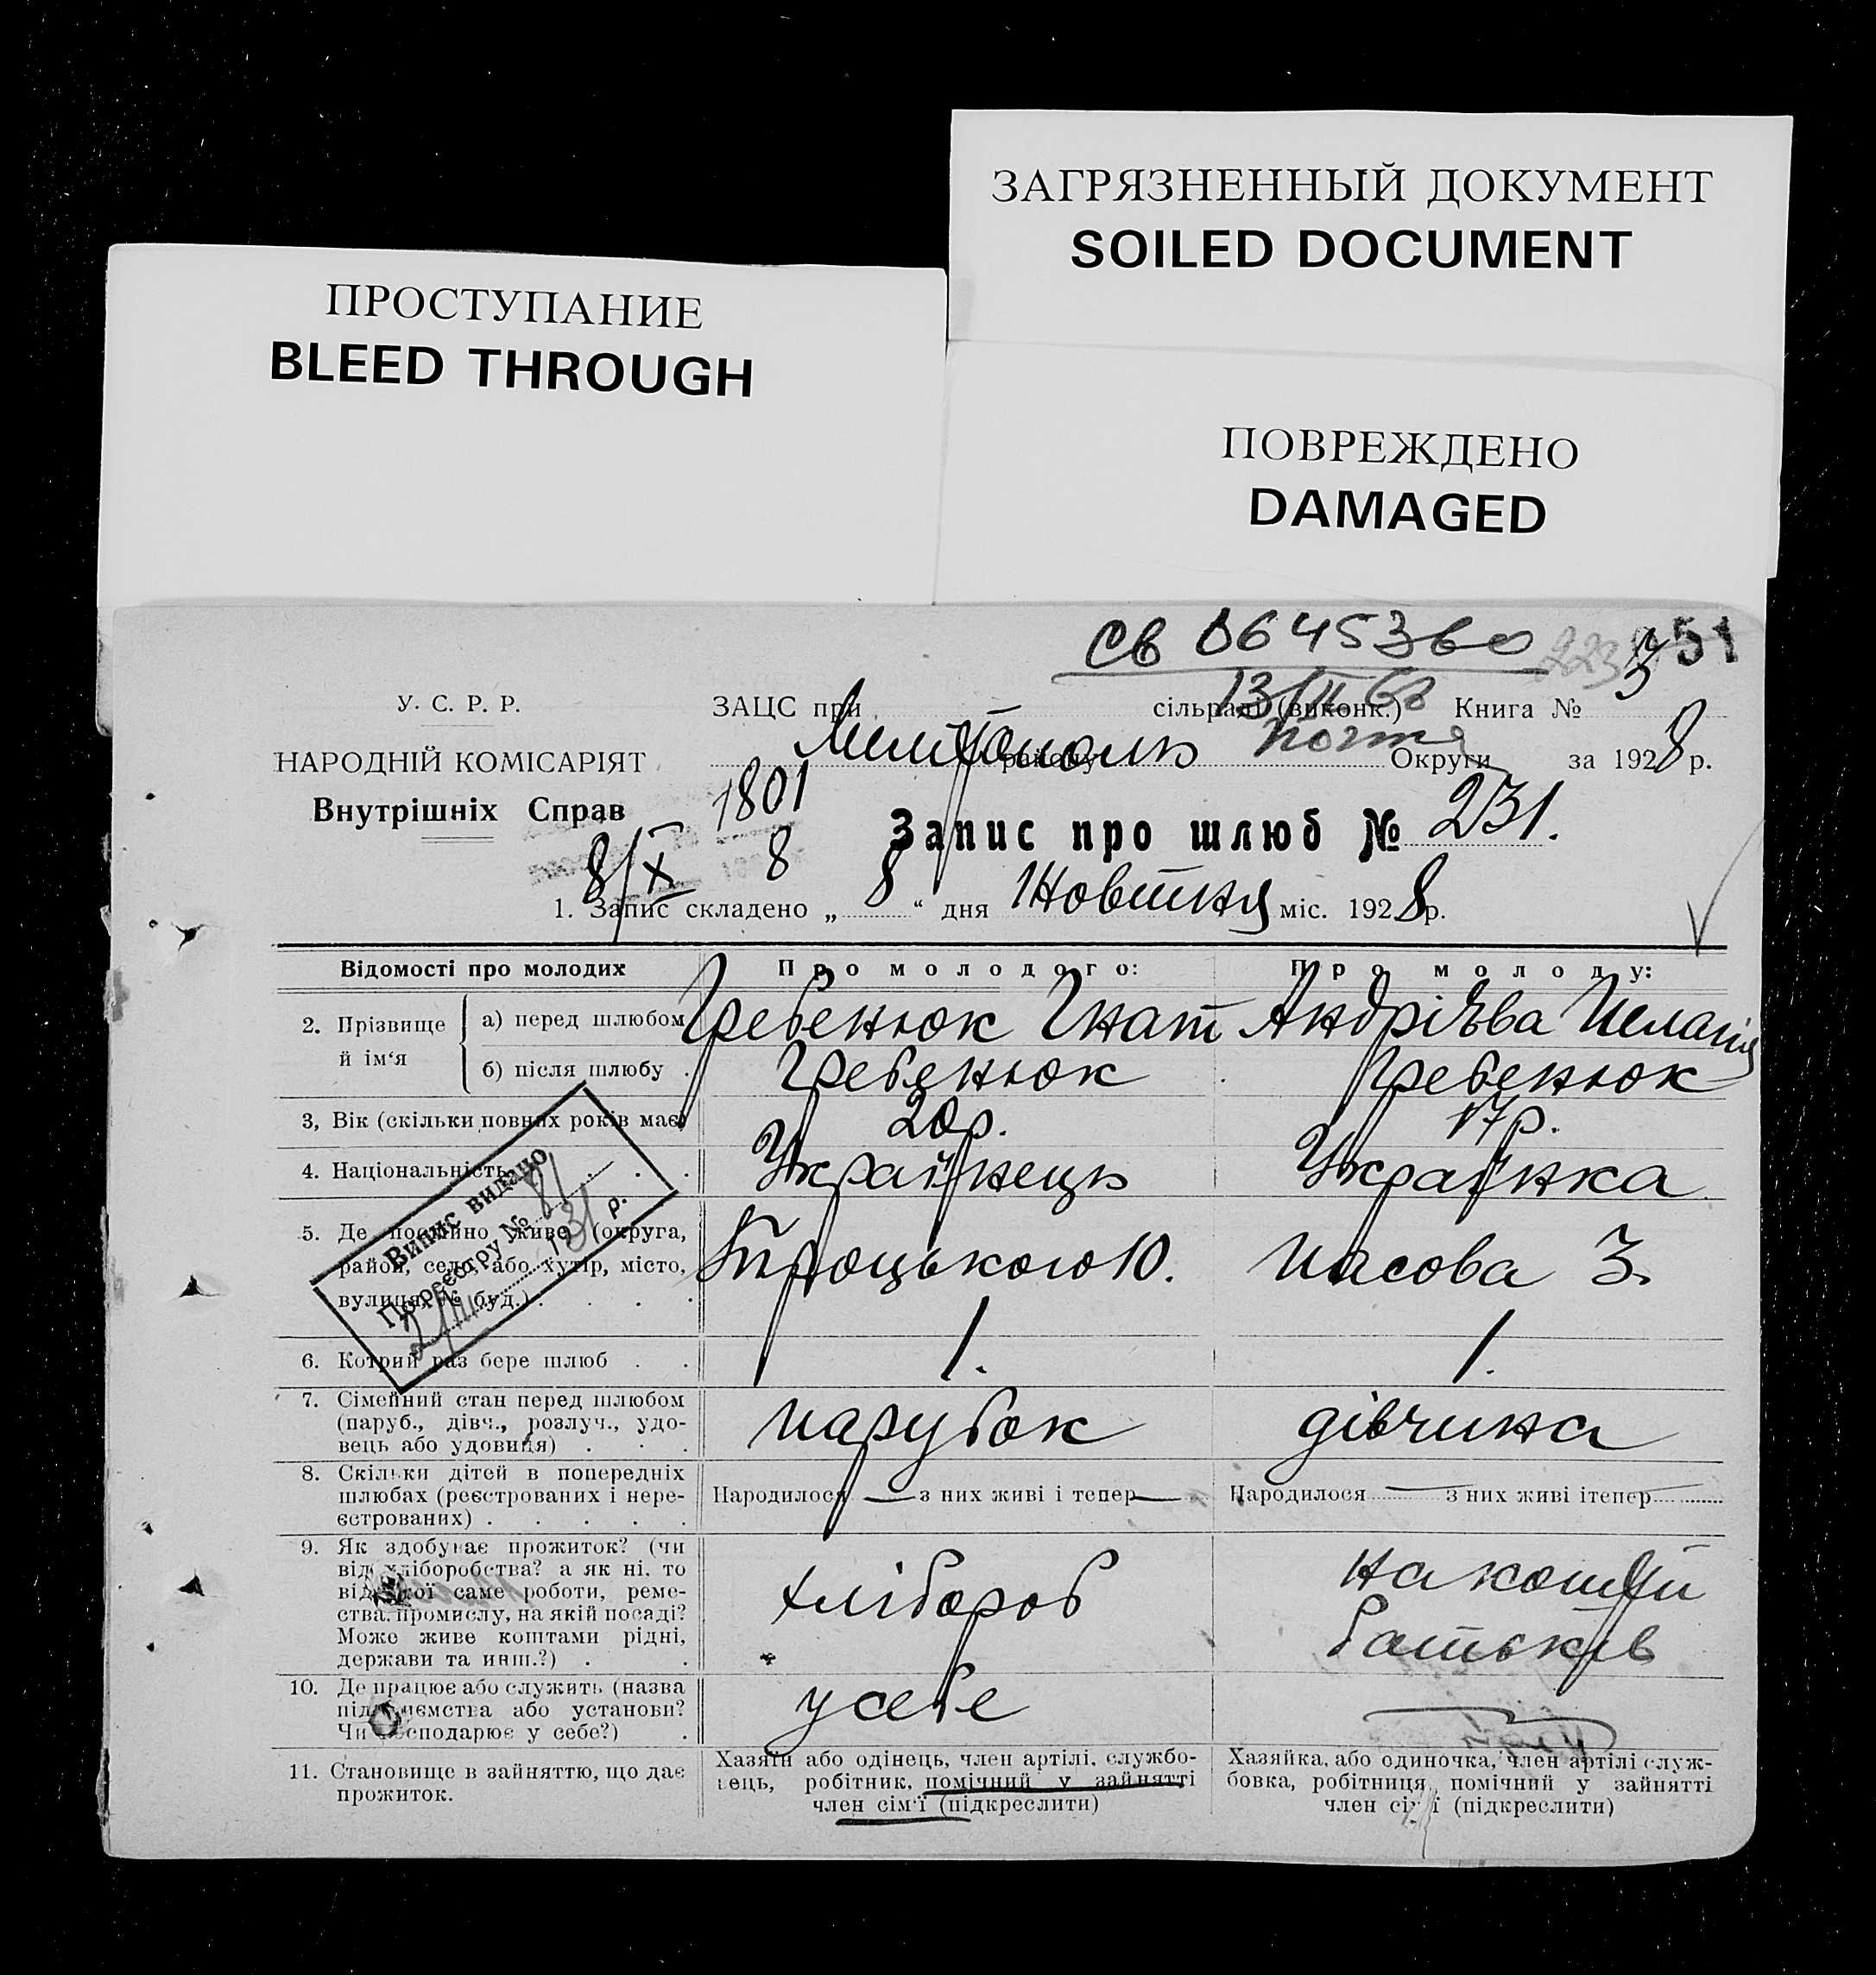 ЗАГРЯЗНЕННЫЙ ДОКУМЕНТ
SOILED DOCUMENT
ПРОСТУПАНИЕ
BLEED THROUGH
ПОВРЕЖДЕНО
DAMAGED
СВ 0645360
51
У. С. Р. Р.
ЗАЦС при сільраді (виконк.) Книга № 3
НАРОДНІЙ КОМІСАРІЯТ
Мелітополь району Округи за 1928 р.
Внутрішніх Справ
1801
Запис про шлюб № 231.
8/X 8
1. Запис складено „ 8 “ дня Жовтня міс. 1928 р.
Відомості про молодих
Про молодого:
Про молоду:
2. Прізвище й ім‘я
а) перед шлюбом Гребенюк Гнат Андріѣва Пелагія
б) після шлюбу . Гребенюк Гребенюк
3, Вік (скільки повних років має) 20р. 17р.
4. Національність . . Українець Українка
5. Де постійно живе (округа,
район, село, або хутір, місто,
вулиця, № буд.) . . . .
Троцького 10. Пасова 3.
Випис видано
По реєстру № 81
2/III 131 р.
6. Котрий раз бере шлюб . . 1. 1.
7. Сімейний стан перед шлюбом
(паруб., дівч., розлуч., удо-
вець або удовиця) . . .
парубок дівчина
8. Скільки дітей в попередніх
шлюбах (реєстрованих і нере-
єстрованих) . . . . .
Народилося — з них живі і тепер —
Народилося — з них живі ітепер —
9. Як здобуває прожиток? (чи
від хліборобства? а як ні, то
від якої саме роботи, реме-
ства, промислу, на якій посаді?
Може живе коштами рідні,
держави та инш.?) . .
хлібороб
на кошти
батьків
10. Де працює або служить (назва
підприємства або установи?
Чи господарює у себе?) .
у себе
11. Становище в зайняттю, що дає
прожиток.
Хазяїн або одінець, член артілі, службо-
вець, робітник, помічний у зайнятті
член сім‘ї (підкреслити)
Хазяйка, або одиночка, член артілі служ-
бовка, робітниця, помічний у зайнятті
член сім‘ї (підкреслити)